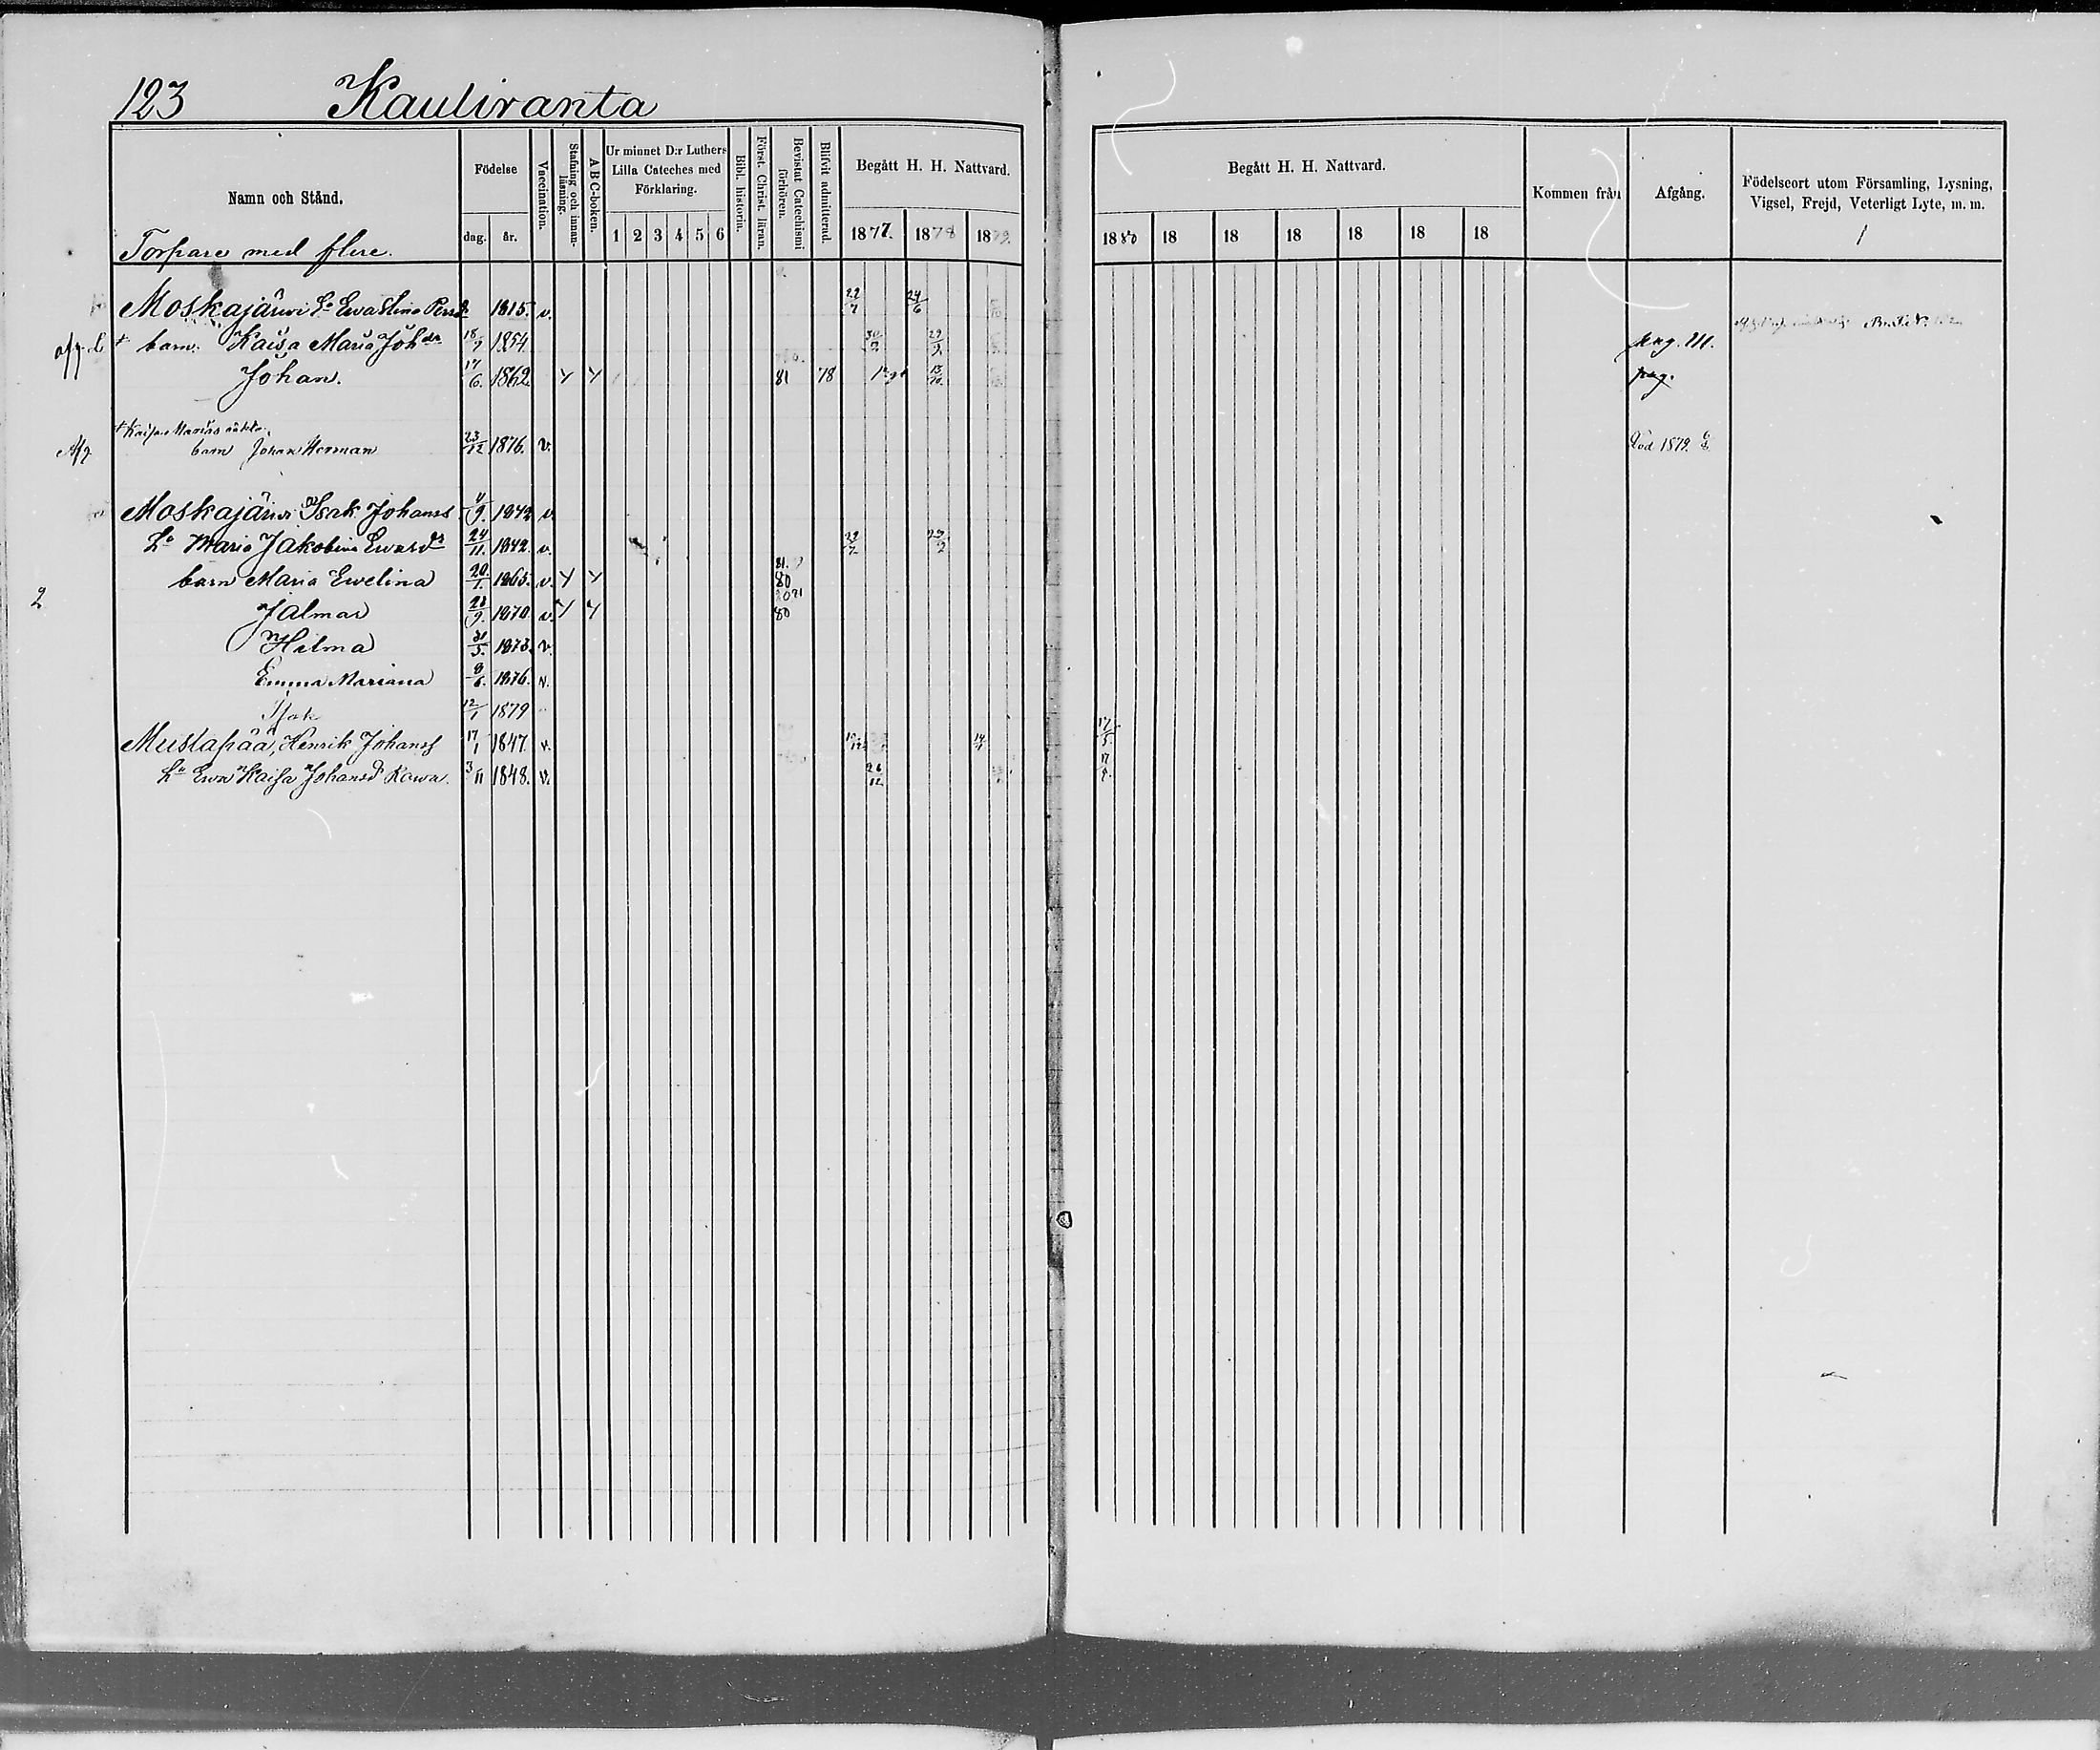 123 Kauliranta
Namn och Stånd.
Torpare med flere.
Födelse
dag. år.
Vaccination.
Stafning och innanläsning.
A B C-boken.
Ur minnet D:r Luthers
Lilla Cateches med
Förklaring.
1 2 3 4 5 6
Bibl. historia.
Först. Christ. läran.
Bevistat Catechismi förhören.
Blifvit admitterad.
Begått H. H. Nattvard.
1877. 1878 1879.
Begått H. H. Nattvard.
1880 18 18 18 18 18 18
Kommen från
Afgång.
Födelseort utom Församling, Lysning,
Vigsel, Frejd, Veterligt Lyte, m. m.
1
Moskajärvi Ewa Stina 1815. v. 22/7 24/6
barn. Kaisa Maria Johdr 18/7 1854. 30/9 29/9 pag.
Johan. 17/6. 1862. 81 78 13/10 pag.
Kajsa Marias oäkta
barn Johan Herman 23/12 1876. v. Död 1879.
Moskajärvi Isak Johanss 4/9. 1842 v.
Maria Jakobina 24/11. 1842. v.
barn Maria Ewelina 20/1. 1865. v. 81. 80
2 Jalmar 1870 v. 80
Hilma 31/5. 1873. v.
Emma Mariana 8/6. 1876. v.
Isak 12/1 1879
Mustapää, Henrik Johanss 17/1 1847. v. 17/5.
Ewa Kaisa Johansd Kawa. 3/11 1848. v. 26/12